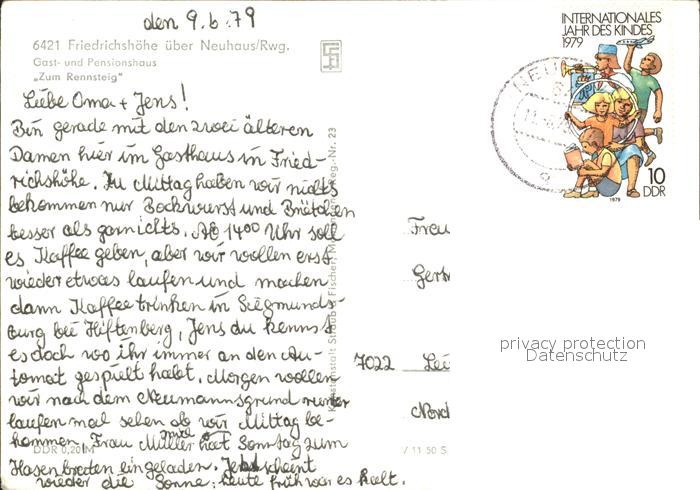 den 9.6.79
6421 Friedrichshöhe über Neuhaus/Rwg.
Gast- und Pensionshaus
„Zum Rennsteig"
Liebe Oma + Jens!
Bin gerade mit den zwei älteren
Damen hier im Gasthaus in Fried-
richshöhe. Zu Mittag haben wir nichts
bekommen nur Bockwurst und Brötchen
besser als garnichts. Ab 14⁰⁰ Uhr soll
es Kaffee geben, aber wir wollen erst
wieder etwas laufen und machen
dann Kaffeetrinken in Siegmunds-
burg bei Hiftenberg, Jens du kennst
es doch wo ihr immer an den Au-
tomat gespielt habt. Morgen wollen
wir nach dem Neumannsgrund runter
laufen mal sehen ob wir Mittag be-
kommen. Frau Müller hat Sonntag zum
Hasenbraten eingeladen. Jetzt scheint
wieder die Sonne, heute früh war es kalt.
DDR 0,20 M
/ 11 50 S
INTERNATIONALES
JAHR DES KINDES
1979
10
DDR
1979
Frau
Gert
7022 Lei
Nord
privacy protection
Datenschutz